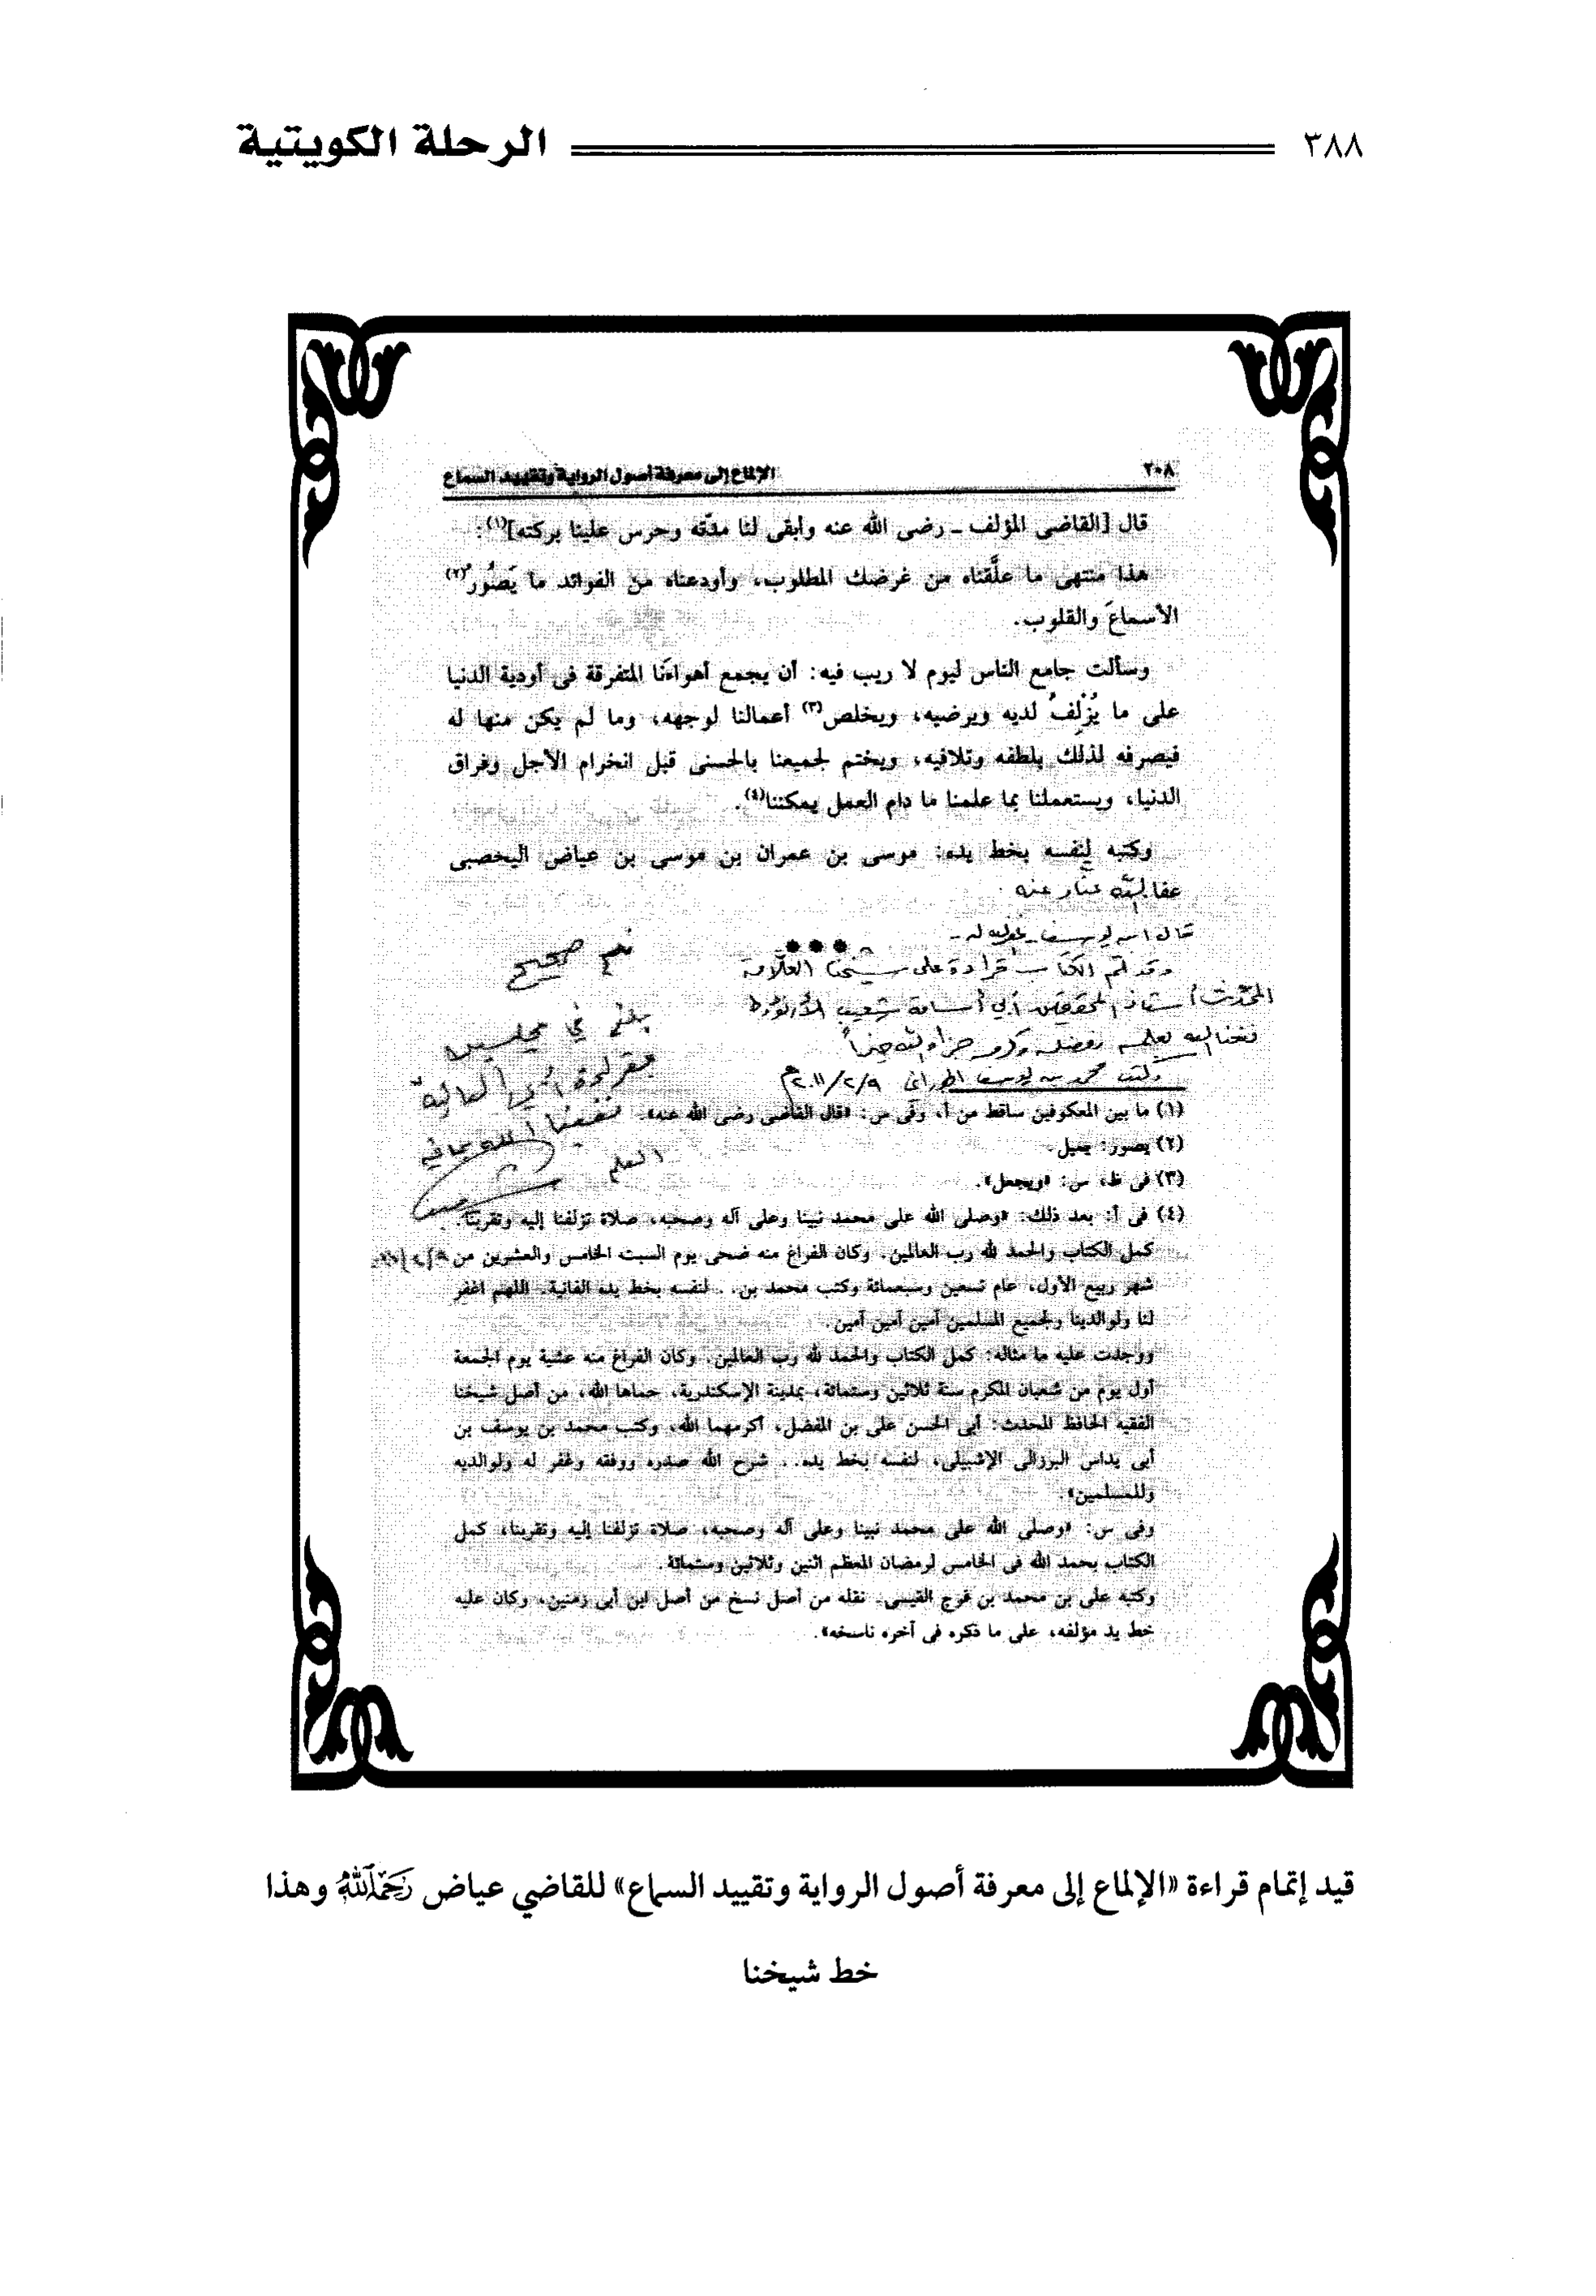 ٣٨٨ الرحلة الكويتية
٢٠٨ الإلماع إلى معرفة أصول الرواية وتقييد السماع
قال [القاضى المؤلف ـ رضى الله عنه وأبقى لنا مدّته وحرس علينا بركته](١):
هذا منتهى ما علَّقناه من غرضك المطلوب، وأودعناه من الفوائد ما يَصُورُ(٢)
الأسماعَ والقلوب.
وسألت جامع الناس ليوم لا ريب فيه: أن يجمع أهواءَنا المتفرقة فى أودية الدنيا
على ما يُزْلِفُ لديه ويرضيه، ويخلص(٣) أعمالنا لوجهه، وما لم يكن منها له
فيصرفه لذلك بلطفه وتلافيه، ويختم لجميعنا بالحسنى قبل انخرام الأجل وفراق
الدنيا، ويستعملنا بما علمنا ما دام العمل يمكننا(٤).
وكتبه لنفسه بخط يده: موسى بن عمران بن موسى بن عياض اليحصبى
عفا الله عنه
قال ابن يوسف ـ غفر الله له ـ
وقد تم الكتاب قراءة على شيخنا العلّامة
المحدّث أستاذ المحققين أبي أسامة شعيب الأرنؤوط
نفعنا الله بعلمه وفضله وكرمه جزاه الله خيراً
وكتب محمد بن يوسف الجوراني ٢٠١١/٢/٩م
نعم صحيح
بلغ في مجلسين
بقراءة
نفعنا الله
العلم
شعيب
(١) ما بين المعكوفين ساقط من أ، وفى س: «قال القاضى رضى الله عنه».
(٢) يصور: يميل.
(٣) فى ظ، س: «ويجعل».
(٤) فى أ: بعد ذلك: «وصلى الله على محمد نبينا وعلى آله وصحبه، صلاة تزلفنا إليه وتقربنا.
كمل الكتاب والحمد لله رب العالمين. وكان الفراغ منه ضحى يوم السبت الخامس والعشرين من
شهر ربيع الأول، عام تسعين وسبعمائة وكتب محمد بن.. لنفسه بخط يده الفانية. اللهم اغفر
لنا ولوالدينا ولجميع المسلمين آمين آمين آمين.
ووجدت عليه ما مثاله: كمل الكتاب والحمد لله رب العالمين. وكان الفراغ منه عشية يوم الجمعة
أول يوم من شعبان المكرم سنة ثلاثين وستمائة، بمدينة الإسكندرية، حماها الله، من أصل شيخنا
الفقيه الحافظ المحدث: أبى الحسن على بن المفضل، أكرمهما الله، وكتب محمد بن يوسف بن
أبى يداس البرزالى الإشبيلى، لنفسه بخط يده.. شرح الله صدره ووفقه وغفر له ولوالديه
وللمسلمين».
وفى س: «وصلى الله على محمد نبينا وعلى آله وصحبه، صلاة تزلفنا إليه وتقربنا، كمل
الكتاب بحمد الله فى الخامس لرمضان المعظم اثنين وثلاثين وستمائة.
وكتبه على بن محمد بن فرج القيسى. نقله من أصل نسخ من أصل ابن أبى زمنين، وكان عليه
خط يد مؤلفه، على ما ذكره فى آخره ناسخه».
قيد إتمام قراءة «الإلماع إلى معرفة أصول الرواية وتقييد السماع» للقاضي عياض رَحِمَهُ اللَّهُ وهذا
خط شيخنا